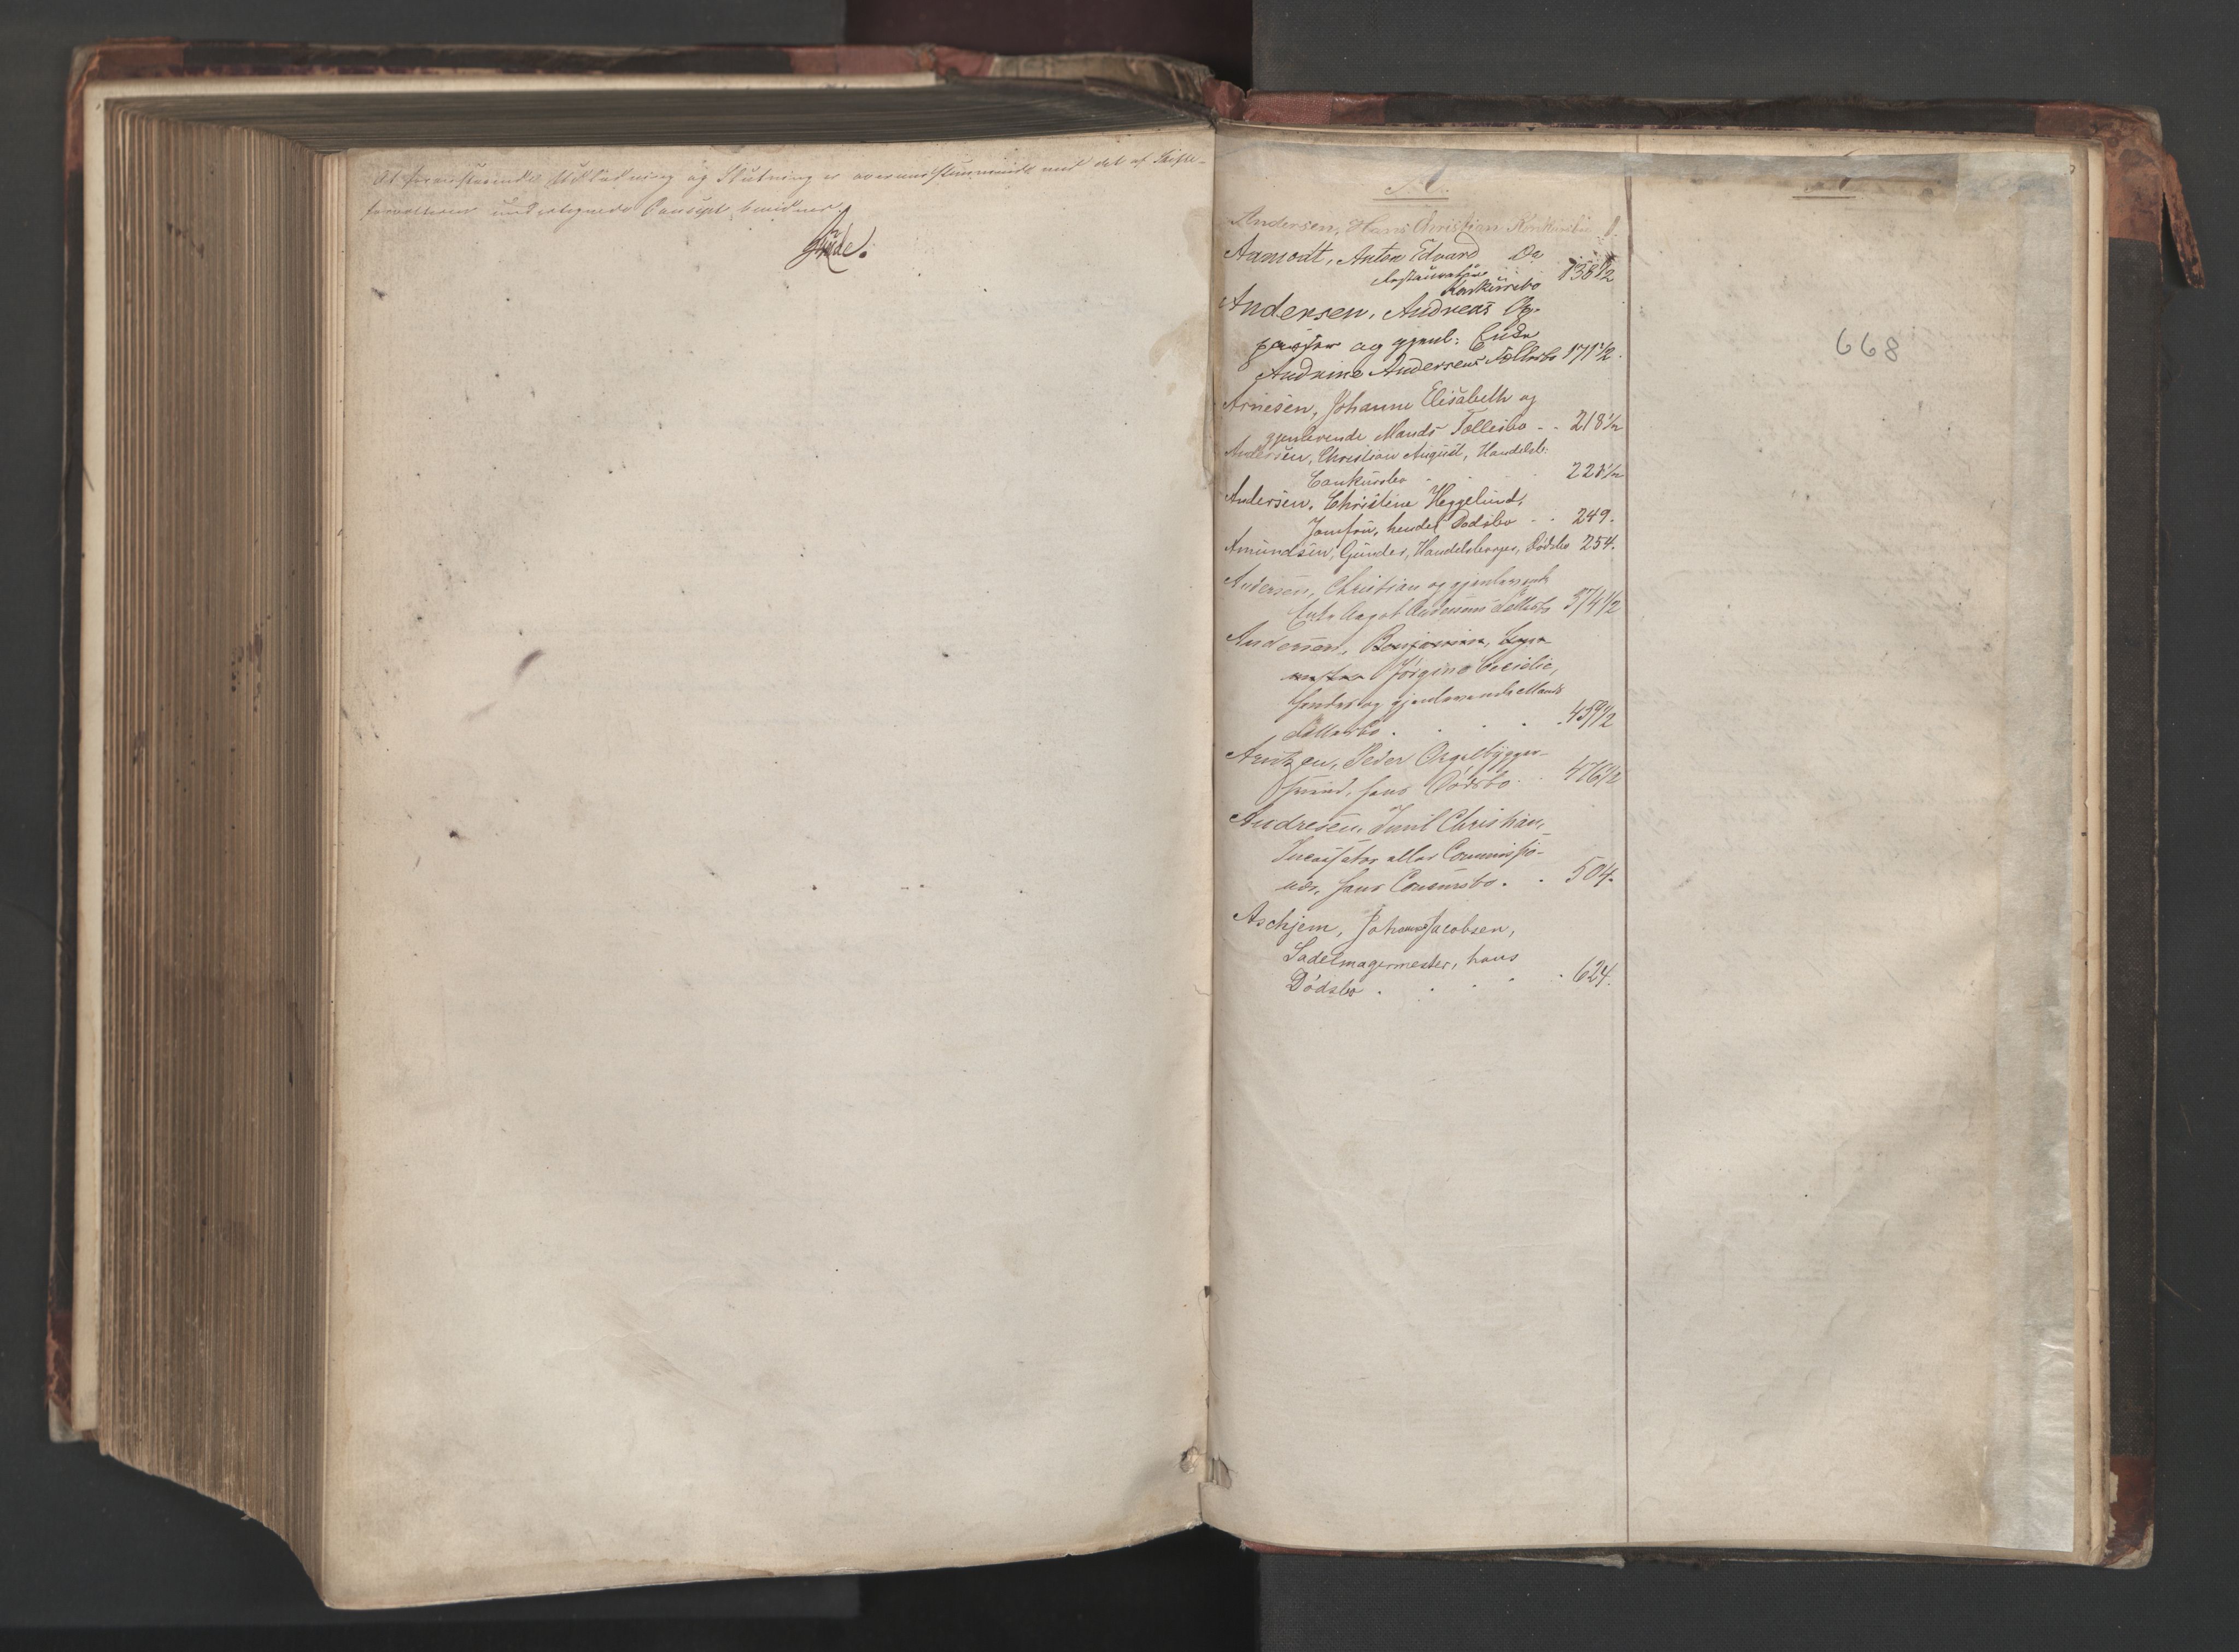 At foranstaaende Udlodning og Slutning er overensstemmende med det af Skifte-
forvalteren undertegnede Concept bevidner
A.
Andersen, Hans Christian Konkursbo 8.
Aamodt, Anton Edvard Do
Restauratør 138½
Konkursbo
Andersen, Andreas Op-
passer og gjenl: Enke
Andrine Andersens Fællesbo 171½.
Arnesen, Johanne Elisabeth og
gjenlevende Mands Fællesbo - - 218½
Andersen, Christian August, Handelsb:
Conkursbo 228½
Andersen, Christine Heggelund,
Jomfru, hendes Dødsbo - - 249.
Amundsen, Gunder, Handelsborger, Dødsbo 254.
Andersen, Christian og gjenlevende
Enke Aagot Andersens Fællesbo 374½
Andersen,
Jørgine Cecilie,
hendes og gjenlevende Mands
Fællesbo . . . . 459½
Arntzen, Peder Orgelbygger-
svend, hans Dødsbo . . 476½
Andresen, Emil Christian,
Incassator eller Commissio-
nær, hans Concursbo . . 504.
Aschjem, Johannes Jacobsen,
Sadelmagermester, hans
Dødsbo . . . . . 624.
668